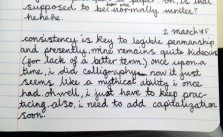 supposed to be normally written?
hehehe.
2 march 45
consistency is key to legible penmanship
and presently, mine remains quite hideous
(for lack of a better term). once upon a
time, i did calligraphy. now it just
seems like a mythical ability i once
had. oh well, i just have to keep prac-
ticing. also, i need to add capitalization
soon.